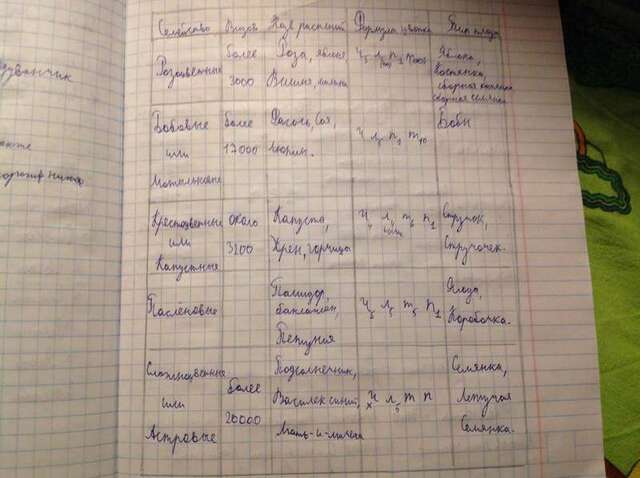 Семейство Видов Назв растений Формула цветка Тип плода
Розоцветные более 3000 Роза, яблоня, Вишня, Яблоко, Костянка,
Бобовые или Мотыльковые более 17000 Фасоль, Соя, Люпин. Ч Л П1 Т10 Бобы
Крестоцветные или Капустные около 3200 Капуста, Хрен, горчица Ч4 Л4 Т6 П1 Стручок, Стручочек.
Паслёновые Помидор, баклажан, Петуния Ч5 Л5 Т5 П1 Ягода, Коробочка.
Сложноцветные или Астровые более 20000 Подсолнечник, Василек синий, Мать-и-мачеха Ч Л5 Т П Семянка, Летучая Семянка.